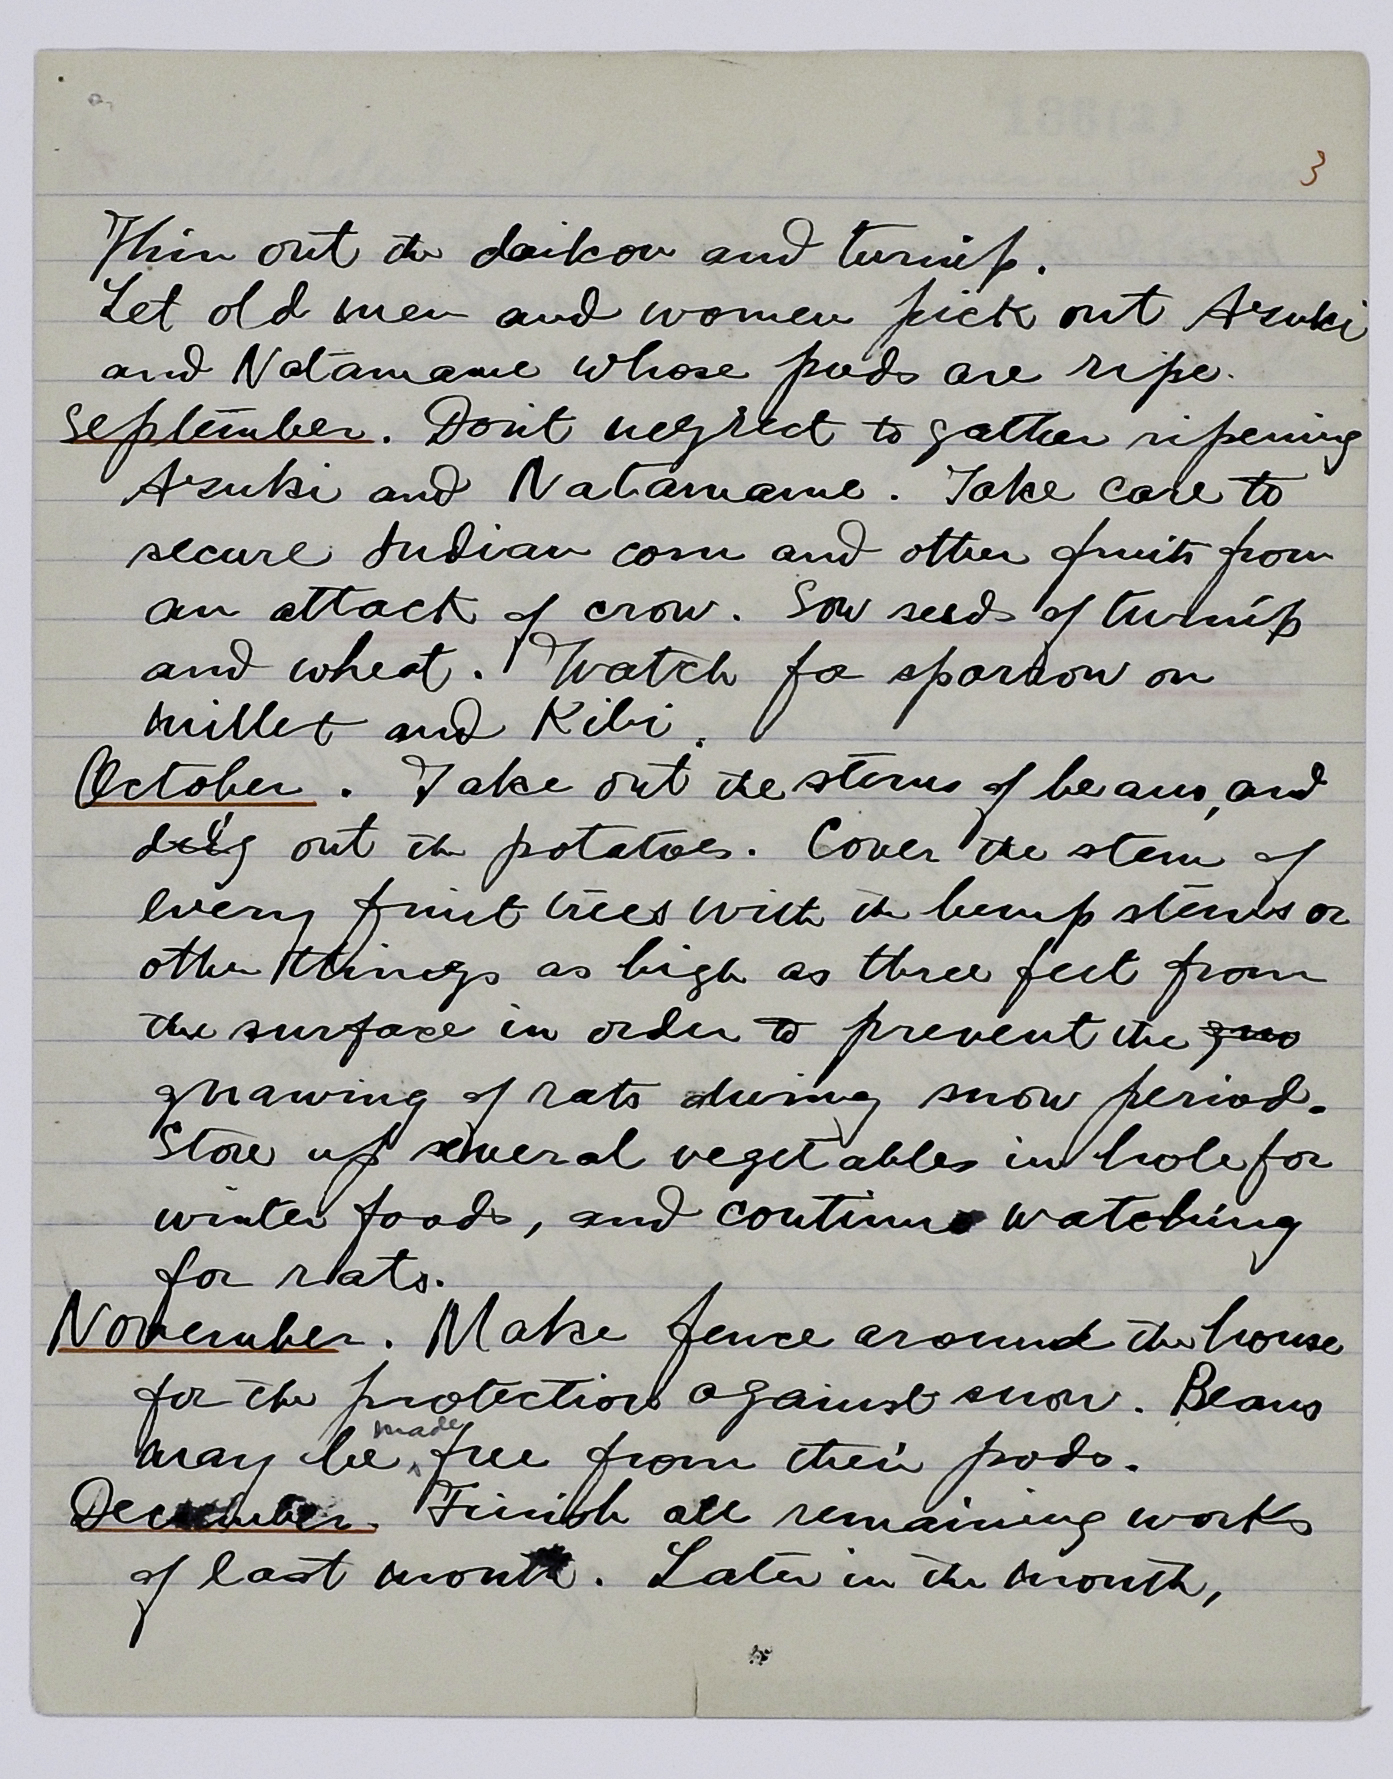 3
Thin out the daikon and turnip.
Let old men and women pick out Azuki
and Natamame whose pods are ripe.
September. Don't neglect to gather ripening
Azuki and Natamame. Take care to
secure Indian corn and other fruits from
an attack of crow. Sow seeds of turnip
and wheat. Watch for sparrow on
millet and Kibi.
October. Take out the stems of beans, and
dig out the potatoes. Cover the stem of
every fruit trees with the hemp stems or
other things as high as three feet from
the surface in order to prevent the gna
gnawing of rats during snow period.
Store up several vegetables in hole for
winter foods, and continue watching
for rats.
November. Make fence around the house
for the protection against snow. Beans
may be made free from their pods.
December. Finish all remaining works
of last month. Later in the month,